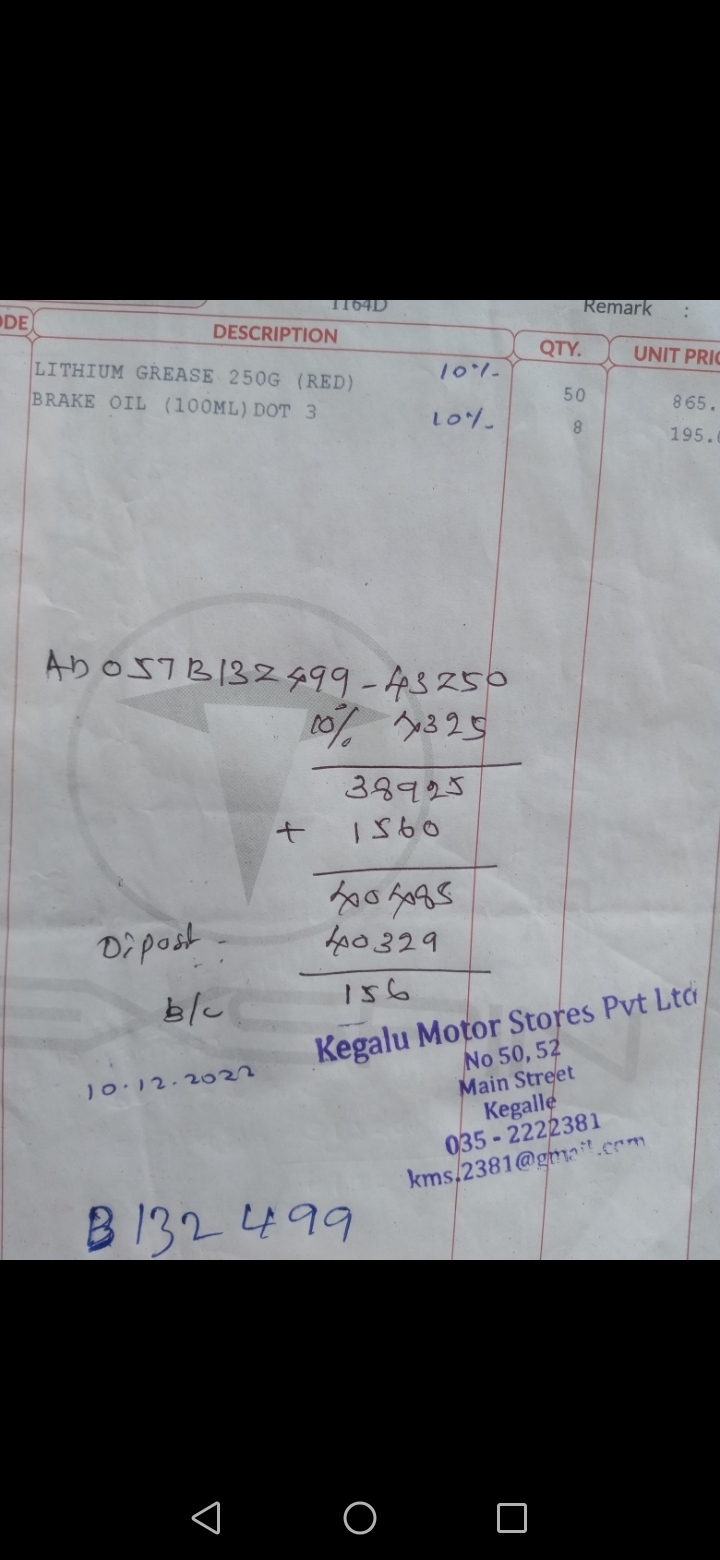 1164D Remark :
DESCRIPTION QTY.
LITHIUM GREASE 250G (RED) 10%- 50 865.
BRAKE OIL (100ML) DOT 3 10%- 8 195.
AD057B132499 - 43250
10% 4325
38925
+ 1560
40485
Dipost - 40329
B/C 156
Kegalu Motor Stores Pvt Ltd
No 50, 52
Main Street
Kegalle
035 - 2222381
kms.2381@gmail.com
10.12.2022
B132499